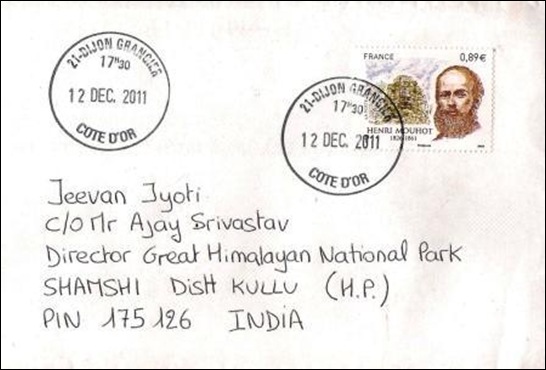 21-DIJON GRANCIER
17H30
12 DEC. 2011
COTE D'OR
FRANCE
0,89€
HENRI MOUHOT
1826-1861
21-DIJON GRANCIER
17H30
12 DEC. 2011
COTE D'OR
Jeevan Jyoti
C/O Mr Ajay Srivastav
Director Great Himalayan National Park
SHAMSHI Distt KULLU (H.P.)
PIN 175126 INDIA